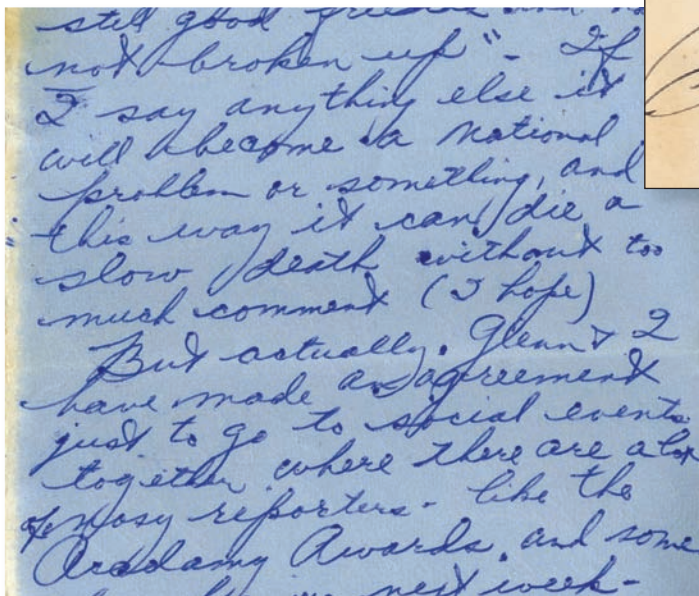 still good friends and
not broken up". If
I say anything else it
will become a national
problem or something, and
this way it can die a
slow death without too
much comment (I hope)
But actually, Glenn & I
have made an agreement
just to go to social events
together where there are a lot
of nosy reporters - like the
Acadamy Awards, and some
next week -